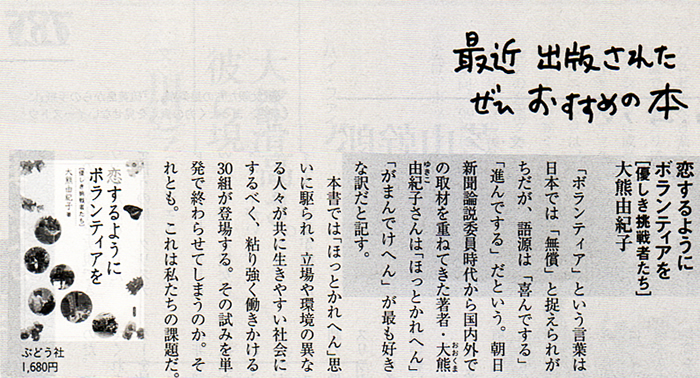 最近 出版された
ぜひ おすすめの 本
恋するように
ボランティアを
[優しき挑戦者たち]
大熊由紀子
「ボランティア」という言葉は
日本では「無償」と捉えられが
ちだが、語源は「喜んでする」
「進んでする」だという。朝日
新聞論説委員時代から国内外で
の取材を重ねてきた著者・大熊
おおくま
由紀子さんは「ほっとかれへん」
ゆきこ
「がまんでけへん」が最も好き
な訳だと記す。
本書では「ほっとかれへん」思
いに駆られ、立場や環境の異な
る人々が共に生きやすい社会に
するべく、粘り強く働きかける
30組が登場する。その試みを単
発で終わらせてしまうのか。そ
れとも。これは私たちの課題だ。
恋するように
ボランティアを
[優しき挑戦者たち]
大熊由紀子・著
ぶどう社
1,680円